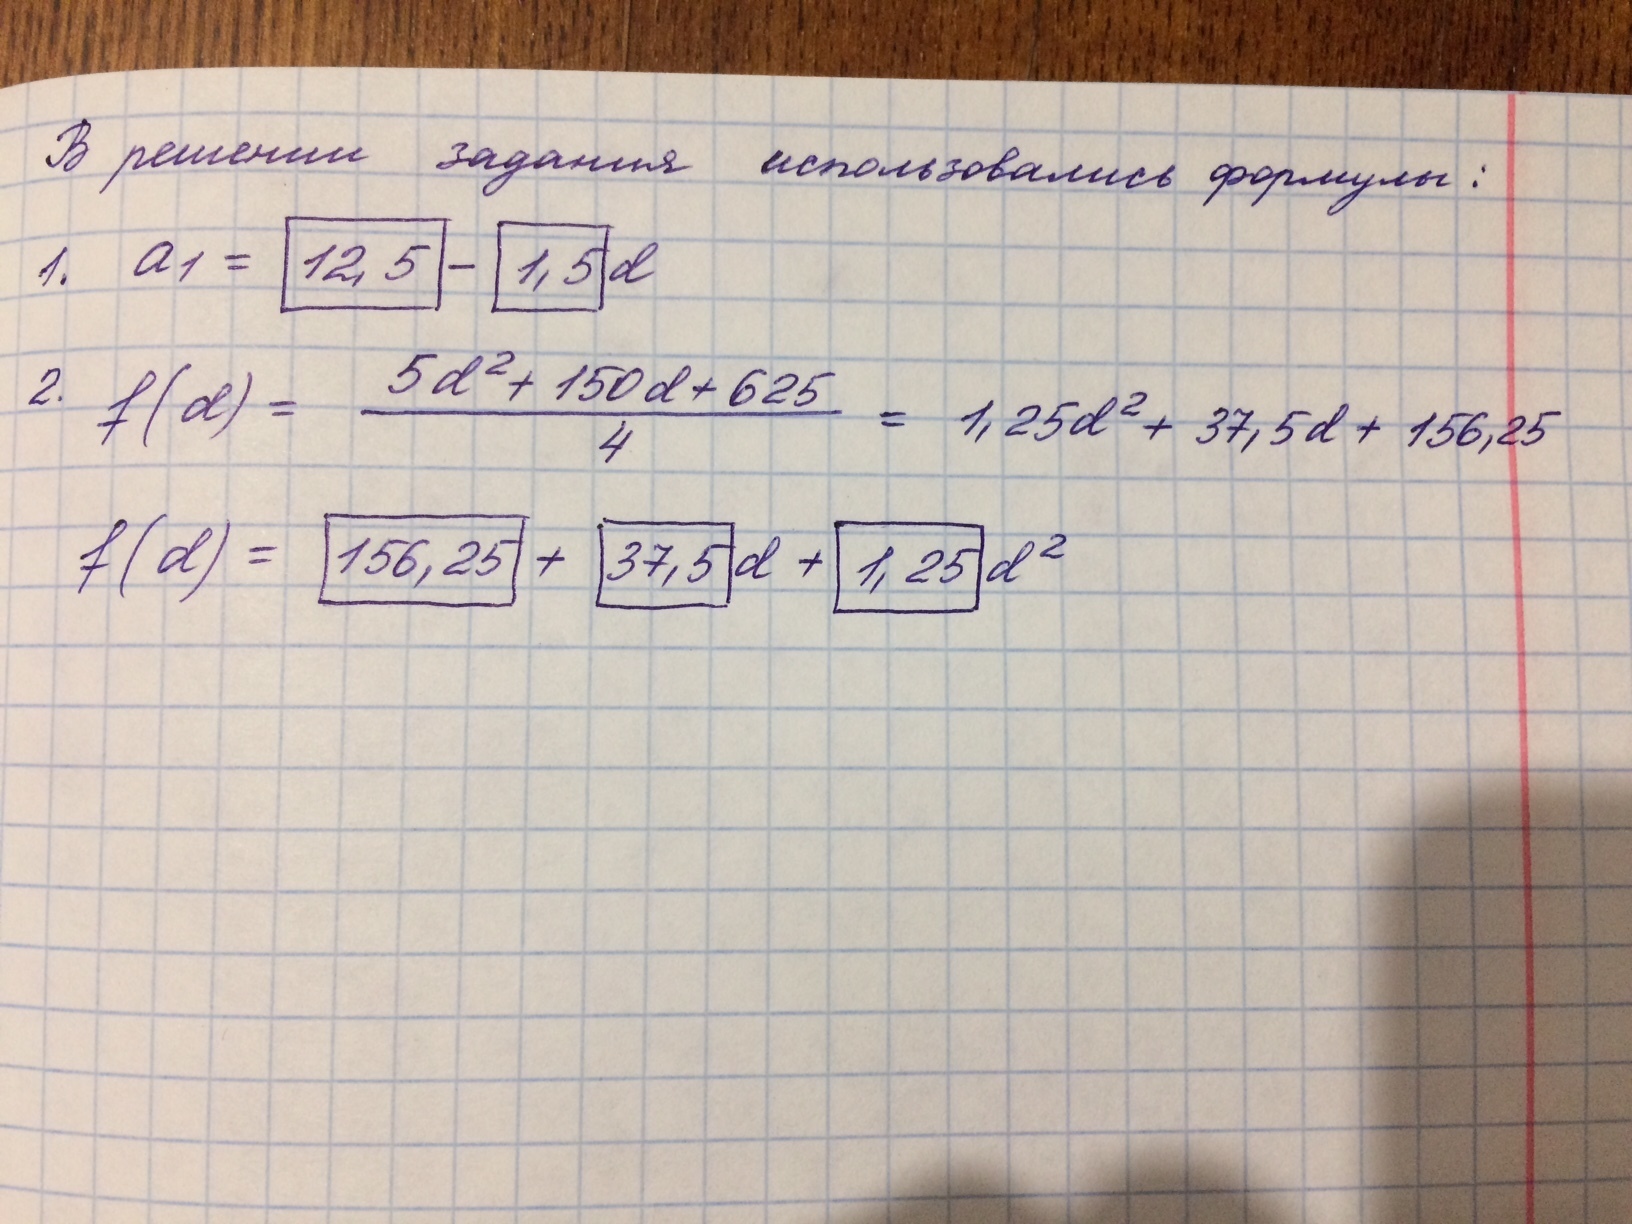 В решении задания использовались формулы:
1. a1 = 12,5 - 1,5 d
2. f(d) = 5d²+150d+625 / 4 = 1,25d² + 37,5d + 156,25
f(d) = 156,25 + 37,5 d + 1,25 d²